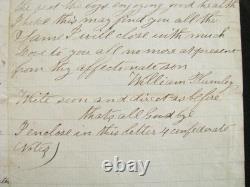 the rest the boys enjoying good health
I hope this may find you all the
Same I will close with much
love to you all no more at present
from thy affectionate son
William
Write soon and direct as before
thats all Good bye
I inclose in this letter 4 confederate
(Notes)